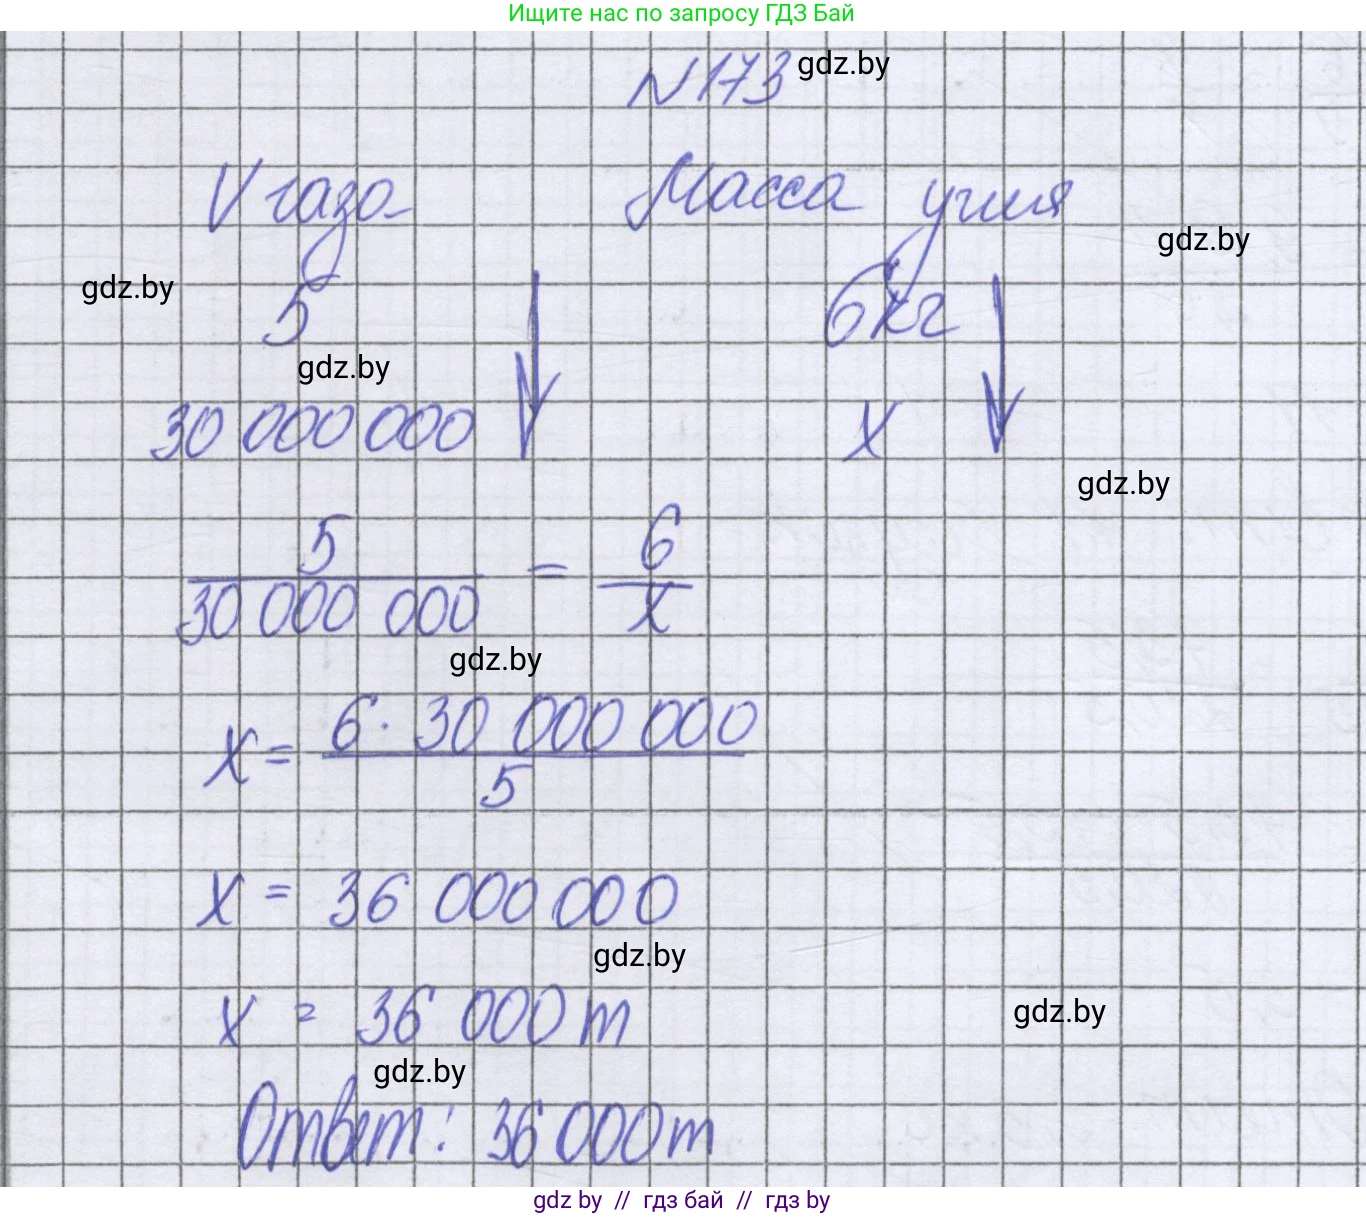 Ищите нас по запросу ГДЗ Бай
N173 gdz.by
V газа Масса угля
gdz.by
gdz.by
5 6кг
gdz.by
30 000 000 x
gdz.by
5 / 30 000 000 = 6 / x
gdz.by
x = 6 · 30 000 000 / 5
x = 36 000 000
gdz.by
x = 36 000 т
gdz.by
gdz.by
Ответ: 36 000 т
gdz by // гдз бай // гдз by